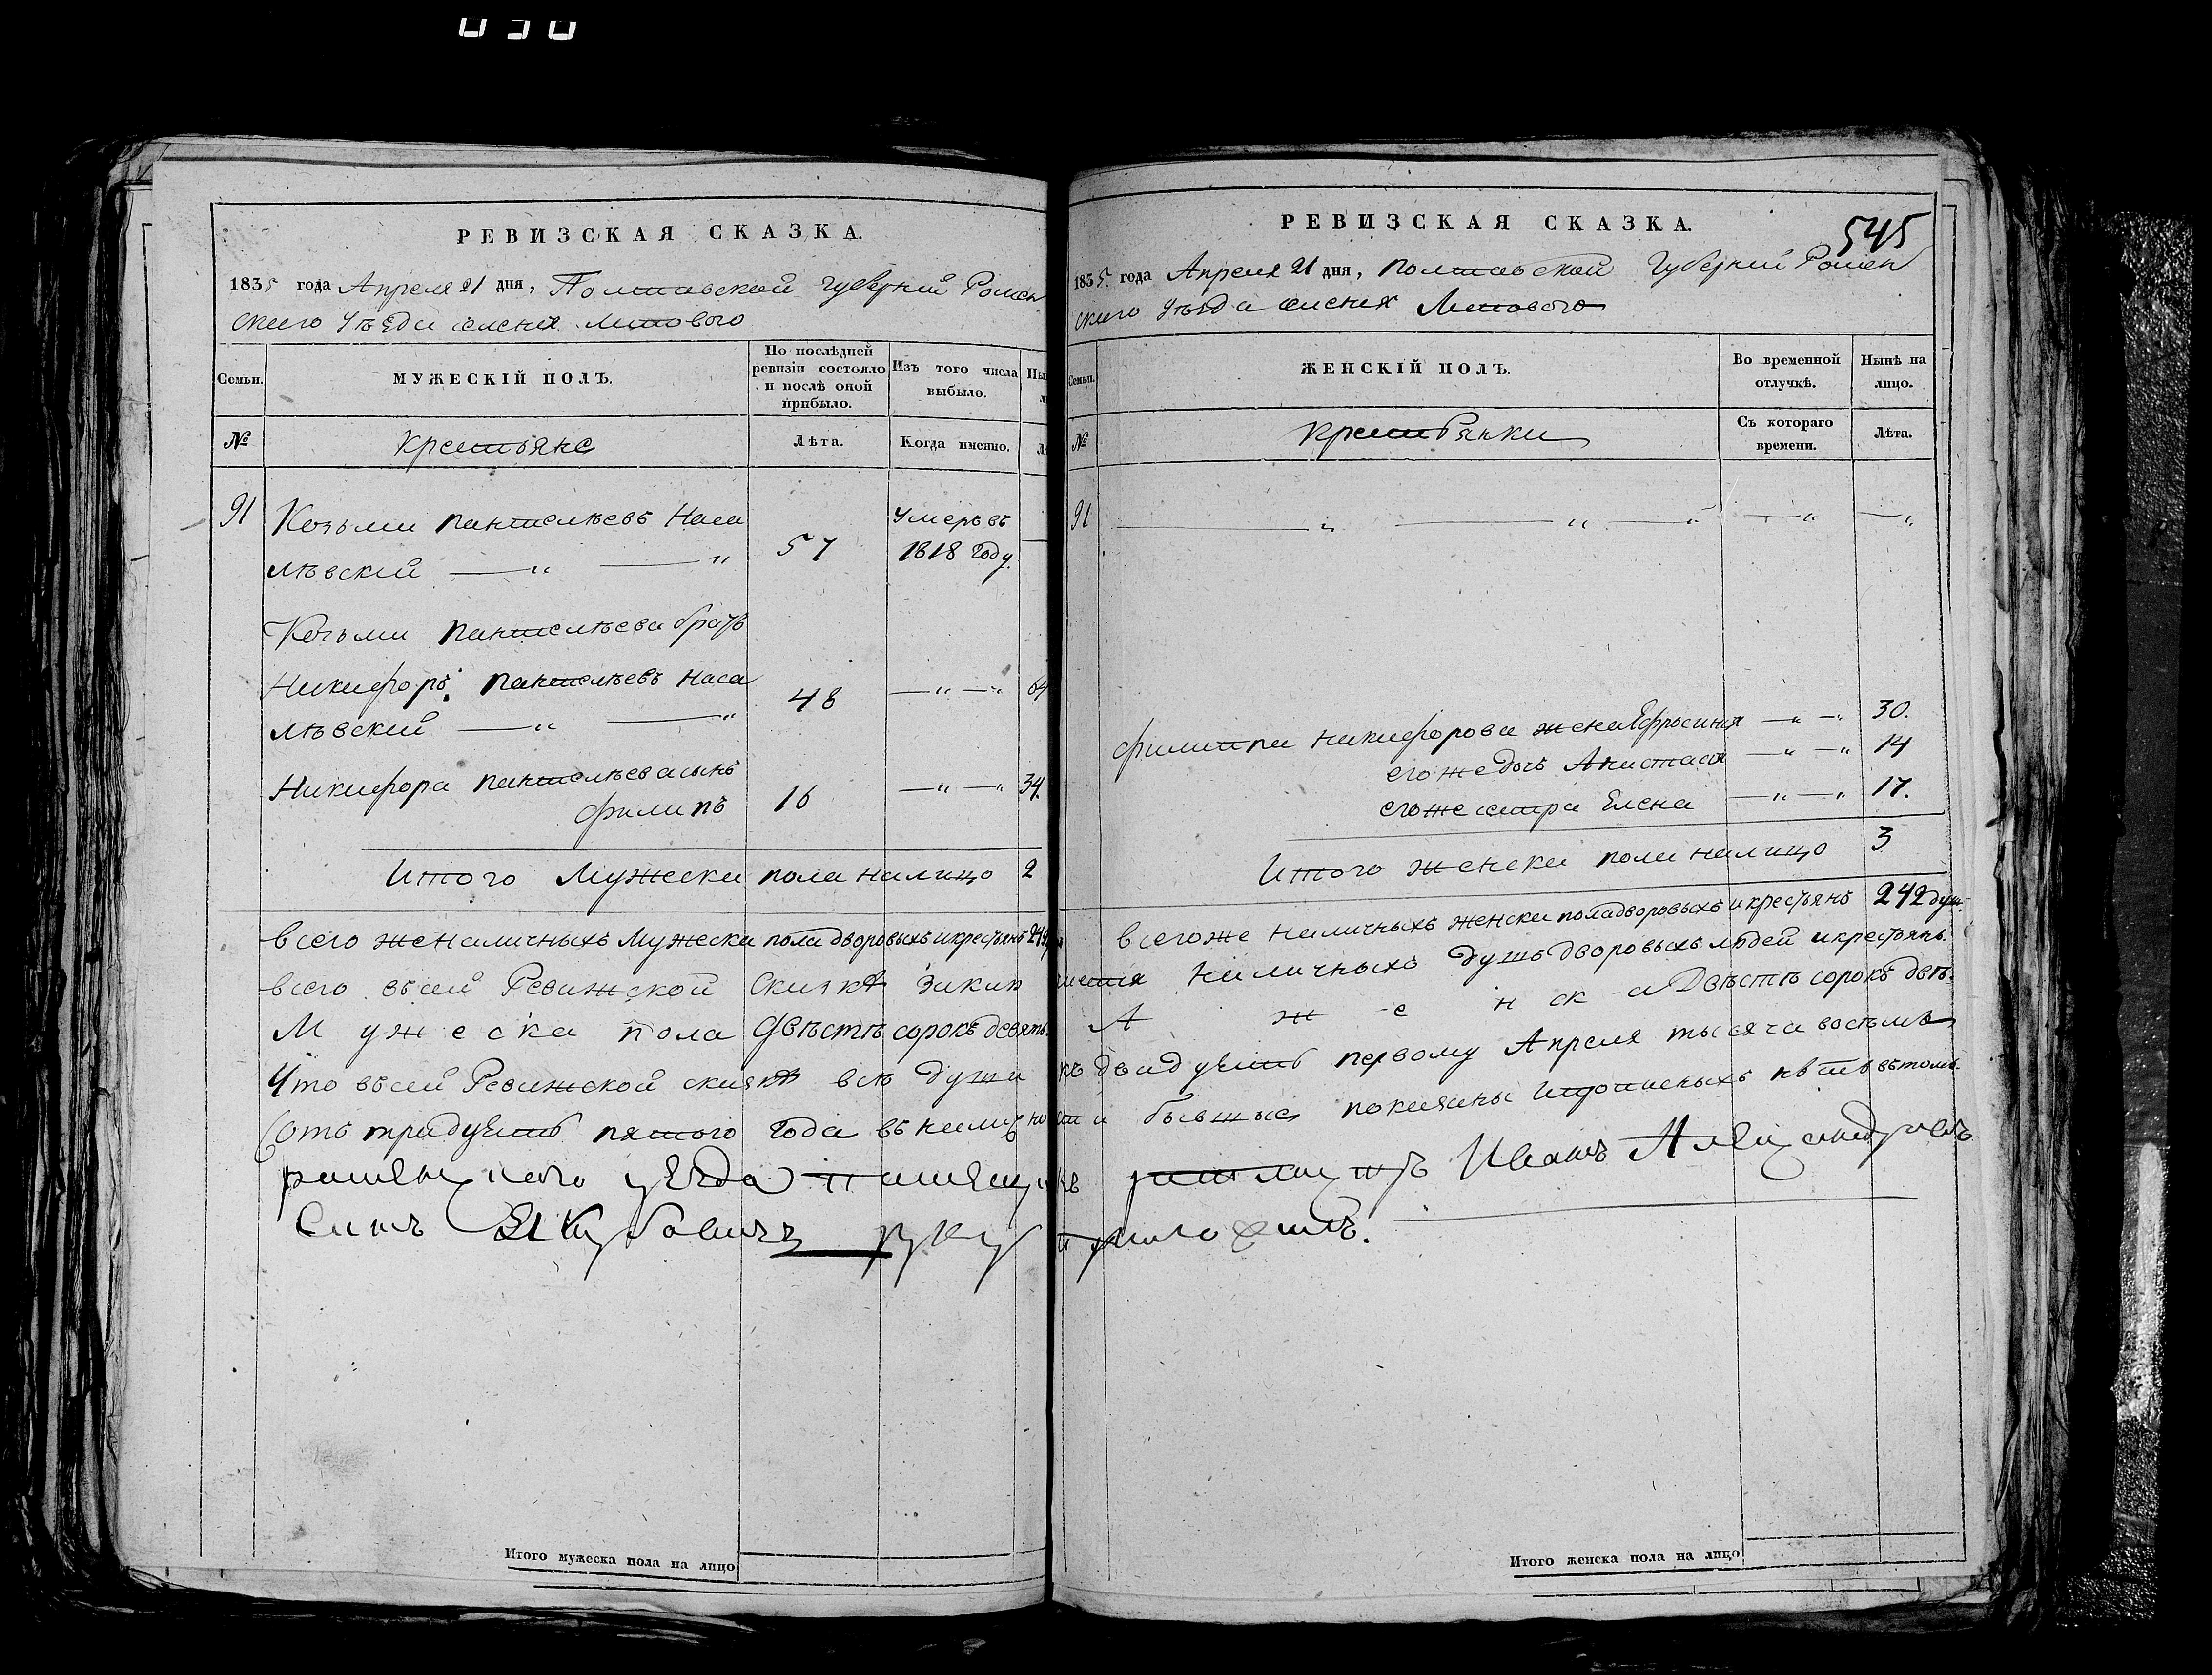 РЕВИЗСКАЯ СКАЗКА.
1835 года Апреля 21 дня, Полтавской Губернии Ромен
скаго Уѣзда селения Липового
Семьи.
МУЖЕСКІЙ ПОЛЪ.
По послѣдней ревизіи состояло и послѣ оной прибыло.
Изъ того числа выбыло.
№
крестьяне
Лѣта.
Когда именно.
91 Козьма пантелѣевъ Наса
лѣвский — „ — „ 57 Умеръ въ 1818 году.
Козьми пантелѣева братъ
Никифоръ пантелѣевъ наса
лѣвский — „ — „ 48 — „ — „ 64
Никифора пантелѣева сынъ
филипъ 16 — „ — „ 34.
Итого Мужеска пола налицо 2
всего же наличныхъ мужеска пола дворовыхъ и крестьянъ 249
всего въ сей Ревижской Сказкѣ заклю
Мужеска пола Двѣстѣ сорокъ девять
Что въ сей Ревижской сказкѣ всѣ души
сотъ тридцать пятого года въ налично
роменскаго уезда помещикъ
Синъ Якубовичъ руку
Итого мужеска пола на лицо
РЕВИЗСКАЯ СКАЗКА.
545
1835. года Апреля 21 дня, полтавской Губернии Ромен
скаго уѣзда селения Липового
Семьи.
ЖЕНСКІЙ ПОЛЪ.
Во временной отлучкѣ.
Нынѣ на лицо.
№
крестьянки
Съ котораго времени.
Лѣта.
91 — „ — „ — „ — „ — „
филиппа никифорова жена Ефросиния — „ — „ 30.
его же дочь Анастасия — „ — „ 14
его же сестра Елена — „ — „ 17.
Итого женска пола налицо 3
всего же наличныхъ женска пола дворовыхъ и крестьянъ 242 душ.
чается наличныхъ душъ дворовыхъ людей и крестьянъ.
А женска Двѣстѣ сорокъ двѣ.
къ двадцать первому Апреля тысяча восемь
сти бывшые показаны и прописныхъ нѣтъ въ томъ
Иванъ Александровъ
приложилъ.
Итого женска пола на лицо